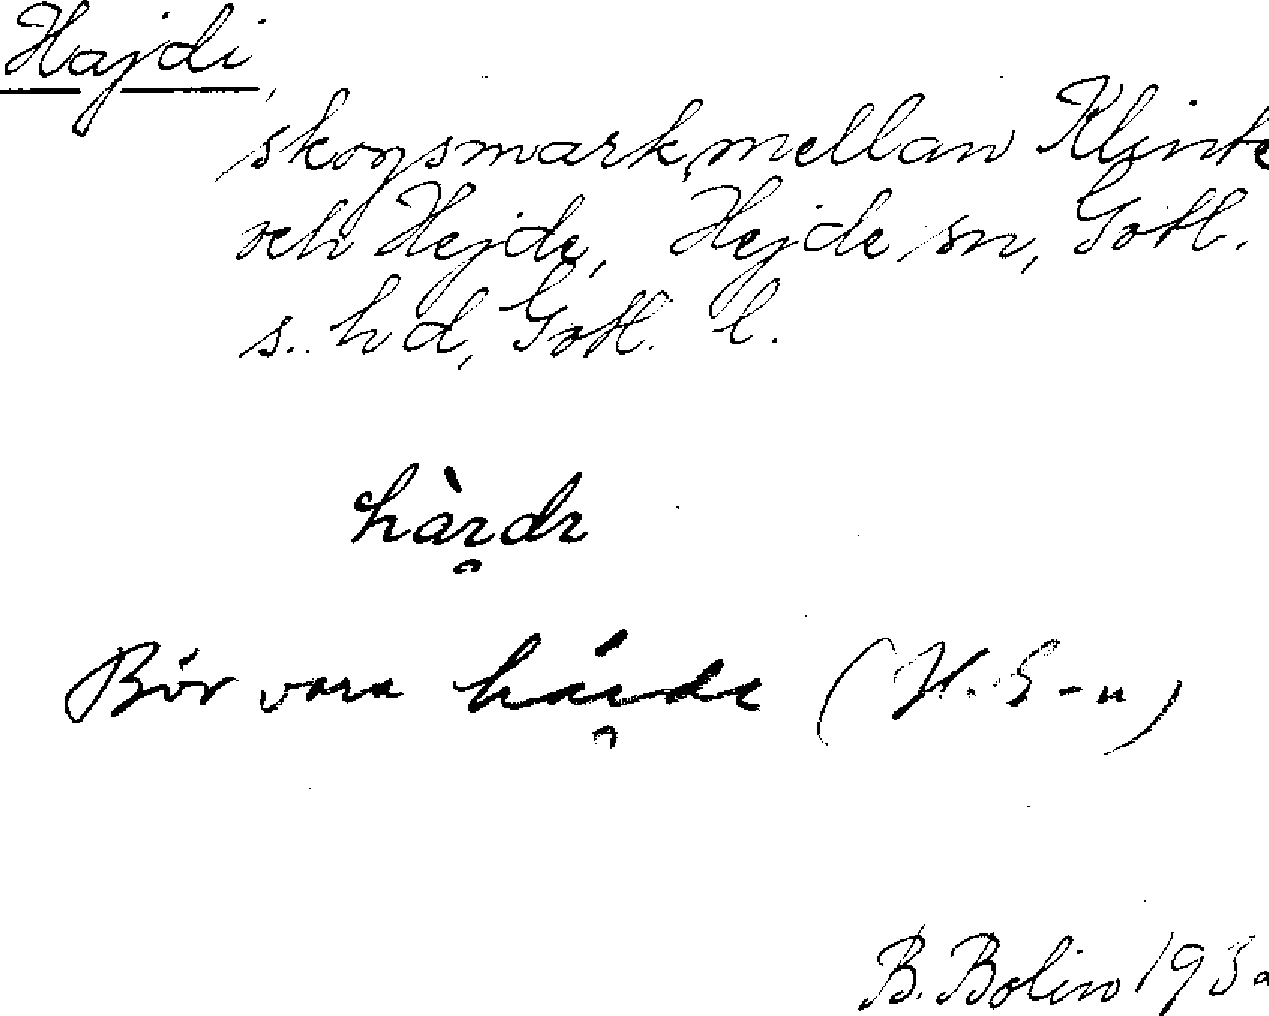 Hajdi,
skogsmark, mellan Klinte
och Hejde, Hejde sn, Gotl.
s. hd, Gotl. l.
Bör vara (H. G-n)
B. Bolin 193